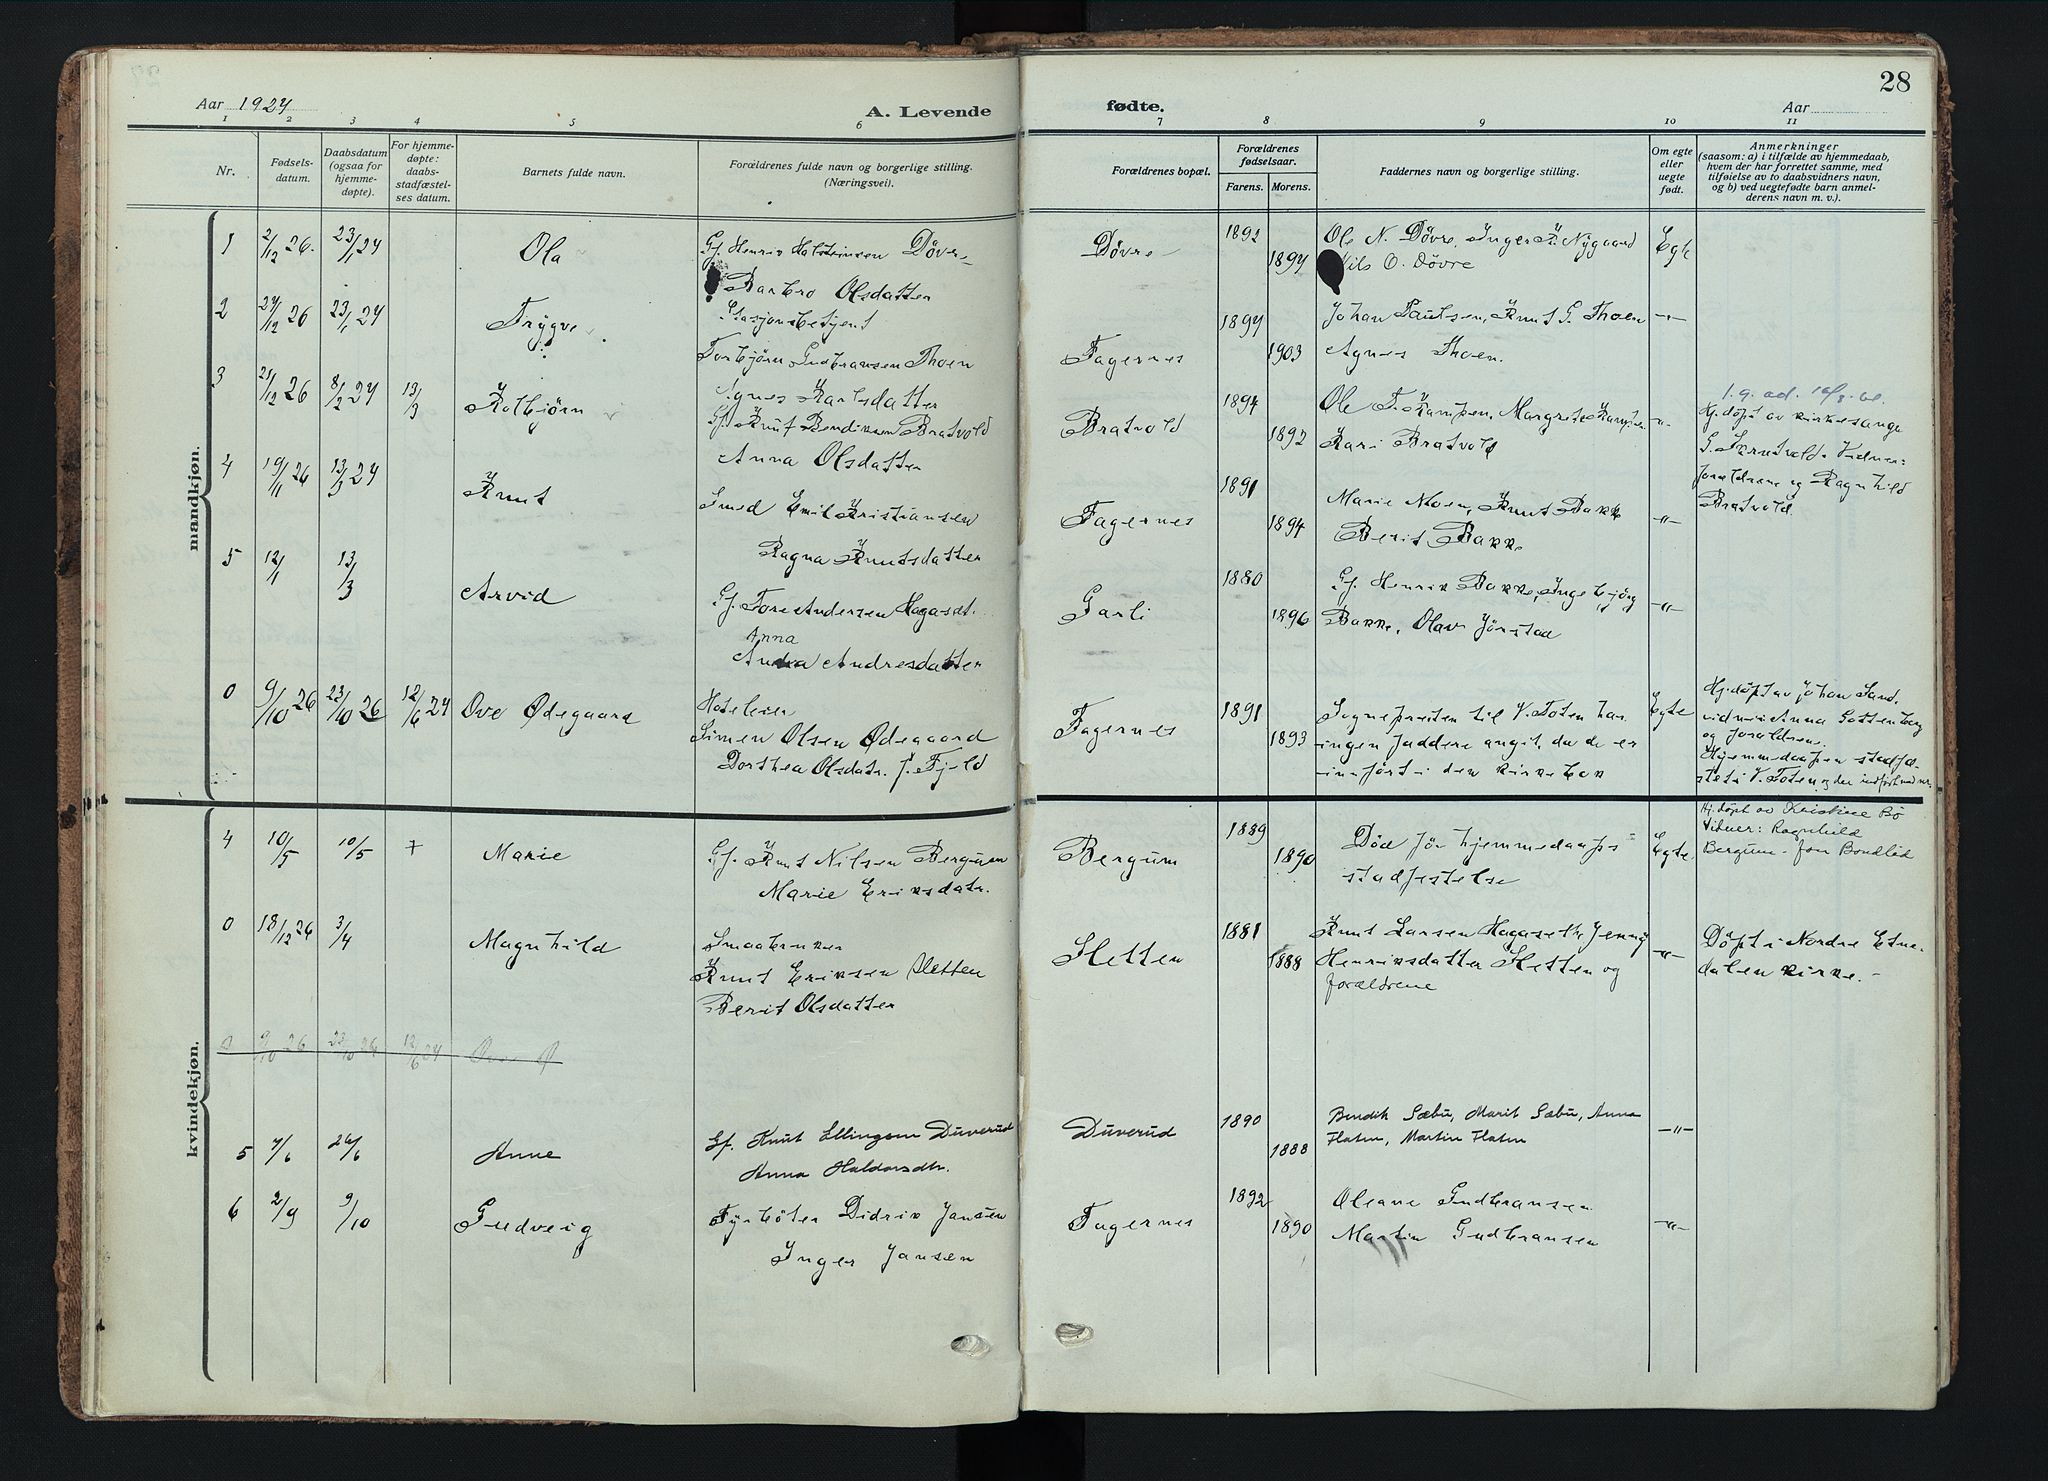 28
Aar 1927
A. Levende
fødte.
Aar
1 2 3 4 5 6 7 8 9 10 11
Nr.
Fødsels-
datum.
Daabsdatum
(ogsaa for
hjemme-
døpte).
For hjemme-
døpte:
daabs-
stadfæstel-
ses datum.
Barnets fulde navn.
Forældrenes fulde navn og borgerlige stilling.
(Næringsvei).
Forældrenes bopæl.
Forældrenes
fødselsaar.
Farens. Morens.
Faddernes navn og borgerlige stilling.
Om egte
eller
uegte
født.
Anmerkninger
(saasom: a) i tilfælde av hjemmedaab,
hvem der har forrettet samme, med
tilføielse av to daabsvidners navn,
og b) ved uegtefødte barn anmel-
derens navn m. v.).
mandkjøn.
1 2/12 26. 23/1 27 Ola Gj. Henrik Halsteinsen Døvre
Barbro Olsdatter
Døvre 1892 1897 Ole N. Døvre, Inger K. Nygaard
Nils O. Døvre
Egte
2 27/12 26 23/1 27 Trygve Stasjonsbetjent
Torbjørn Gudbransen Thoen
Agnes Karlsdatter
Fagernes 1897 1903 Johan Paulsen, Knut G. Thoen
Agnes Thoen.
-"-
3 21/12 26 8/2 27 13/3 Kolbjørn Gj. Knut Bendiksen Bratvold
Anna Olsdatter
Bratvold 1894 1892 Ole T. Kampen, Margrete Kampen
Kari Bratvold
-"-
Hj.døpt av kirkesanger
G. Vidner:
foreldrene og Ragnhild
Bratvold.
4 19/11 26 13/3 27 Knut Smed Emil Kristiansen
Ragna Knutsdatter
Fagernes 1891 1894 Marie Moen, Knut Bakke
Berit Bakke
-"-
5 12/1 13/3 Arvid Gj. Tore Andersen Hagaset.
Anna
Andresdatter
Garli 1880 1896 Gj. Henrik Bakke, Ingebjørg
Bakke, Olav Jørstad
-"-
0 9/10 26 23/10 26 12/6 27 Ove Ødegaard Hoteleier
Simen Olsen Ødegaard
Dorthea Olsdatr. f. Fjeld
Fagernes 1891 1893 Sognepresten til V. Toten har
ingen faddere angit, da de er
inført i den kirkebok
Egte
Hj.døpt av Johan Sand,
vidner Anna Gottenborg
og foreldrene.
Hjemmedaapen stadfæ-
stet i V. Toten og der indført med nr.
kvindekjøn.
4 10/5 10/5 + Marie Gj. Knut Nilsen Bergum
Marie Eriksdatr.
Bergum 1889 1890 Død før hjemmedaaps
stadfestelse
Egte
Hj.døpt av Kristine Bø
Vitner: Ragnhild
Bergum - Jon Bondlid
0 18/12 26 3/4 Magnhild Smaabruker
Knut Eriksen Sletten
Berit Olsdatter
Sletten 1881 1888 Knut Larsen Hagaseth, Jenny
Henriksdatter Sletten og
forældrene
-"-
Døpt i Nordre Etne-
dalen kirke.
0 9/10 26 23/10 26 12/6 27 Ove Ø
5 7/6 26/6 Anne Gj. Knut Ellingsen Duverud
Anna Haldorsdtr.
Duverud 1890 1888 Bendik Sæbu, Marit Sæbu, Anna
Flaten, Martin Flaten
-"-
6 2/9 9/10 Gudveig Fyrbøter Didrik Jansen
Inger Jansen
Fagernes 1892 1890 Oleane Gudbransen
Martin Gudbransen
-"-